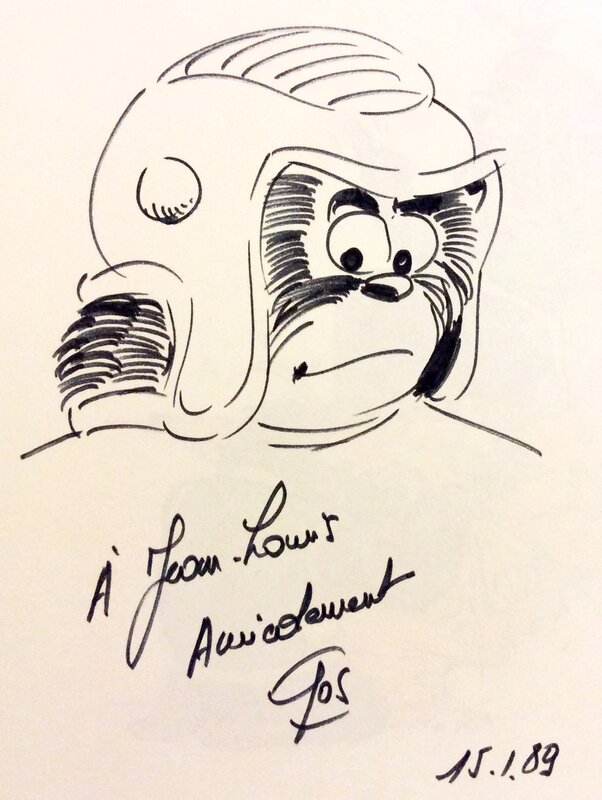 À Jean-Louis
Amicalement
Gos
15.1.89